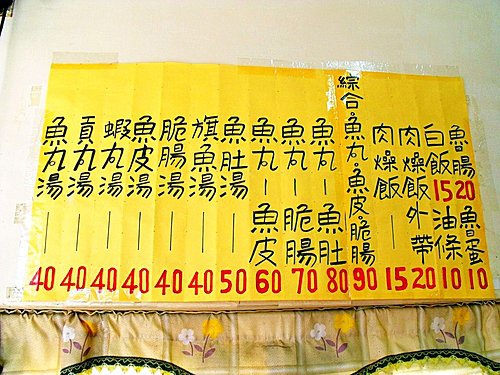 魚丸湯—40
貢丸湯—40
蝦丸湯—40
魚皮湯—40
脆腸湯—40
旗魚湯—40
魚肚湯—50
魚丸—魚皮60
魚丸—脆腸70
魚丸—魚肚80
綜合·魚丸·魚皮·脆腸90
肉燥飯—15
肉燥飯外帶20
白飯15
油條10
魯腸20
魯蛋10